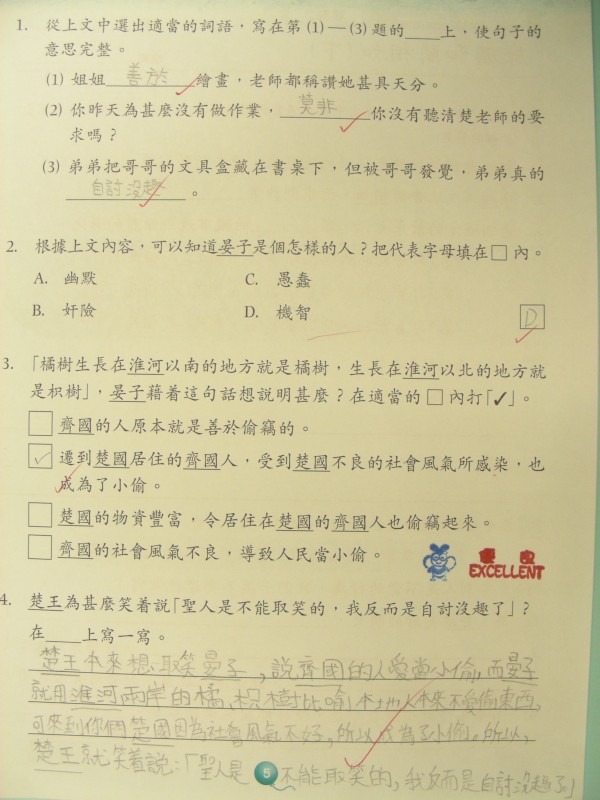 1. 從上文中選出適當的詞語，寫在第(1)—(3)題的____上，使句子的
意思完整。
(1) 姐姐善於繪畫，老師都稱讚她甚具天分。
(2) 你昨天為甚麼沒有做作業，莫非你沒有聽清楚老師的要
求嗎？
(3) 弟弟把哥哥的文具盒藏在書桌下，但被哥哥發覺，弟弟真的
自討沒趣。
2. 根據上文內容，可以知道晏子是個怎樣的人？把代表字母填在□內。
A. 幽默 C. 愚蠢
B. 奸險 D. 機智 D
3. 「橘樹生長在淮河以南的地方就是橘樹，生長在淮河以北的地方就
是枳樹」，晏子藉着這句話想說明甚麼？在適當的□內打「✓」。
□ 齊國的人原本就是善於偷竊的。
☑ 遷到楚國居住的齊國人，受到楚國不良的社會風氣所感染，也
成為了小偷。
□ 楚國的物資豐富，令居住在楚國的齊國人也偷竊起來。
□ 齊國的社會風氣不良，導致人民當小偷。
優良
EXCELLENT
4. 楚王為甚麼笑着說「聖人是不能取笑的，我反而是自討沒趣了」？
在____上寫一寫。
楚王本來想取笑晏子，說齊國的人愛當小偷，而晏子
就用淮河兩岸的橘、枳樹比喻本地人本來不愛偷東西，
可來到你們楚國因為社會風氣不好，所以成為了小偷。所以，
楚王就笑着說：「聖人是不能取笑的，我反而是自討沒趣了」
5